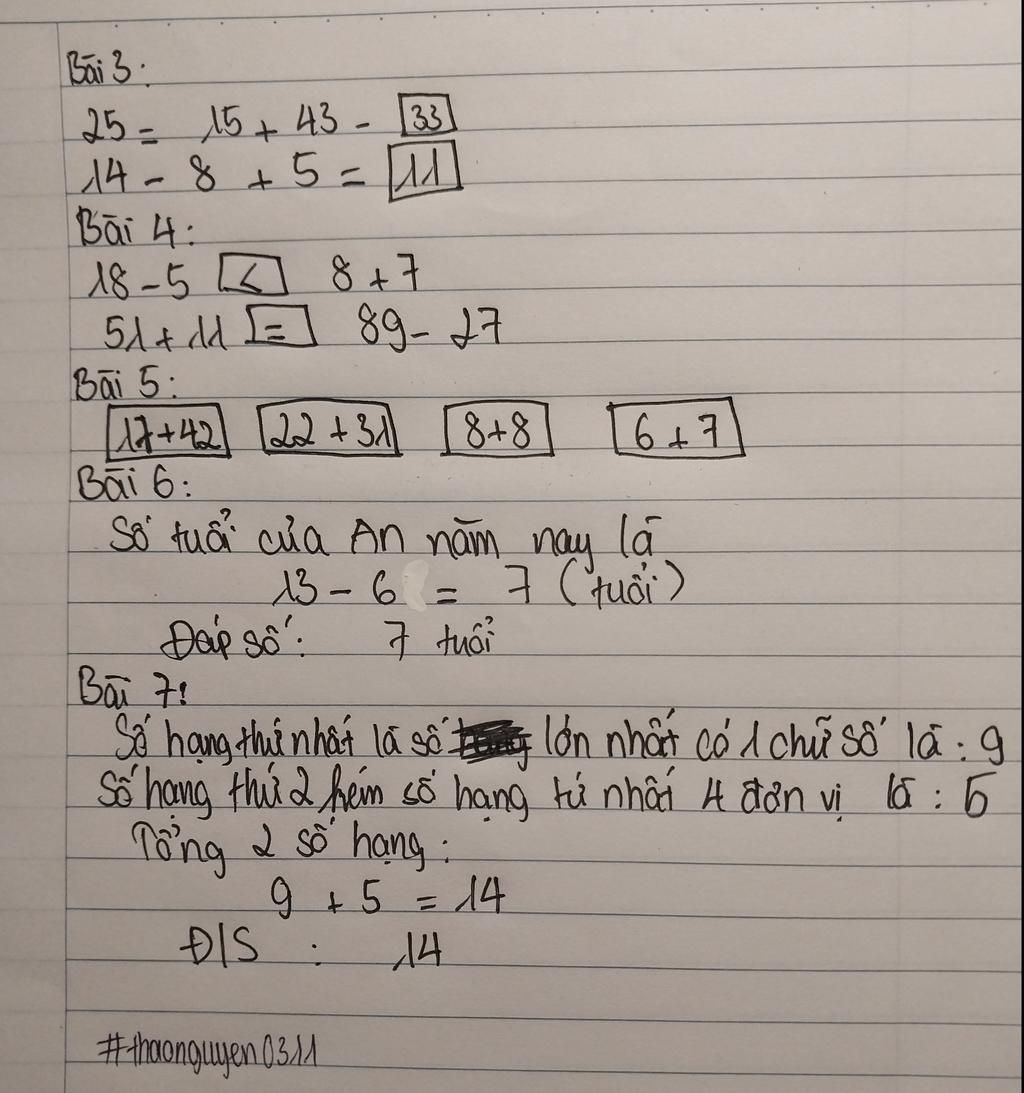 Bài 3:
25 = 15 + 43 - 33
14 - 8 + 5 = 11
Bài 4:
18 - 5 < 8 + 7
51 + 11 = 89 - 27
Bài 5:
17+42 22+31 8+8 6+7
Bài 6:
Số tuổi của An năm nay là
13 - 6 = 7 (tuổi)
Đáp số: 7 tuổi
Bài 7:
Số hạng thứ nhất là số lớn nhất có 1 chữ số là: 9
Số hạng thứ 2 kém số hạng tứ nhất 4 đơn vị là: 5
Tổng 2 số hạng:
9 + 5 = 14
Đ/S : 14
#thaonguyen0311